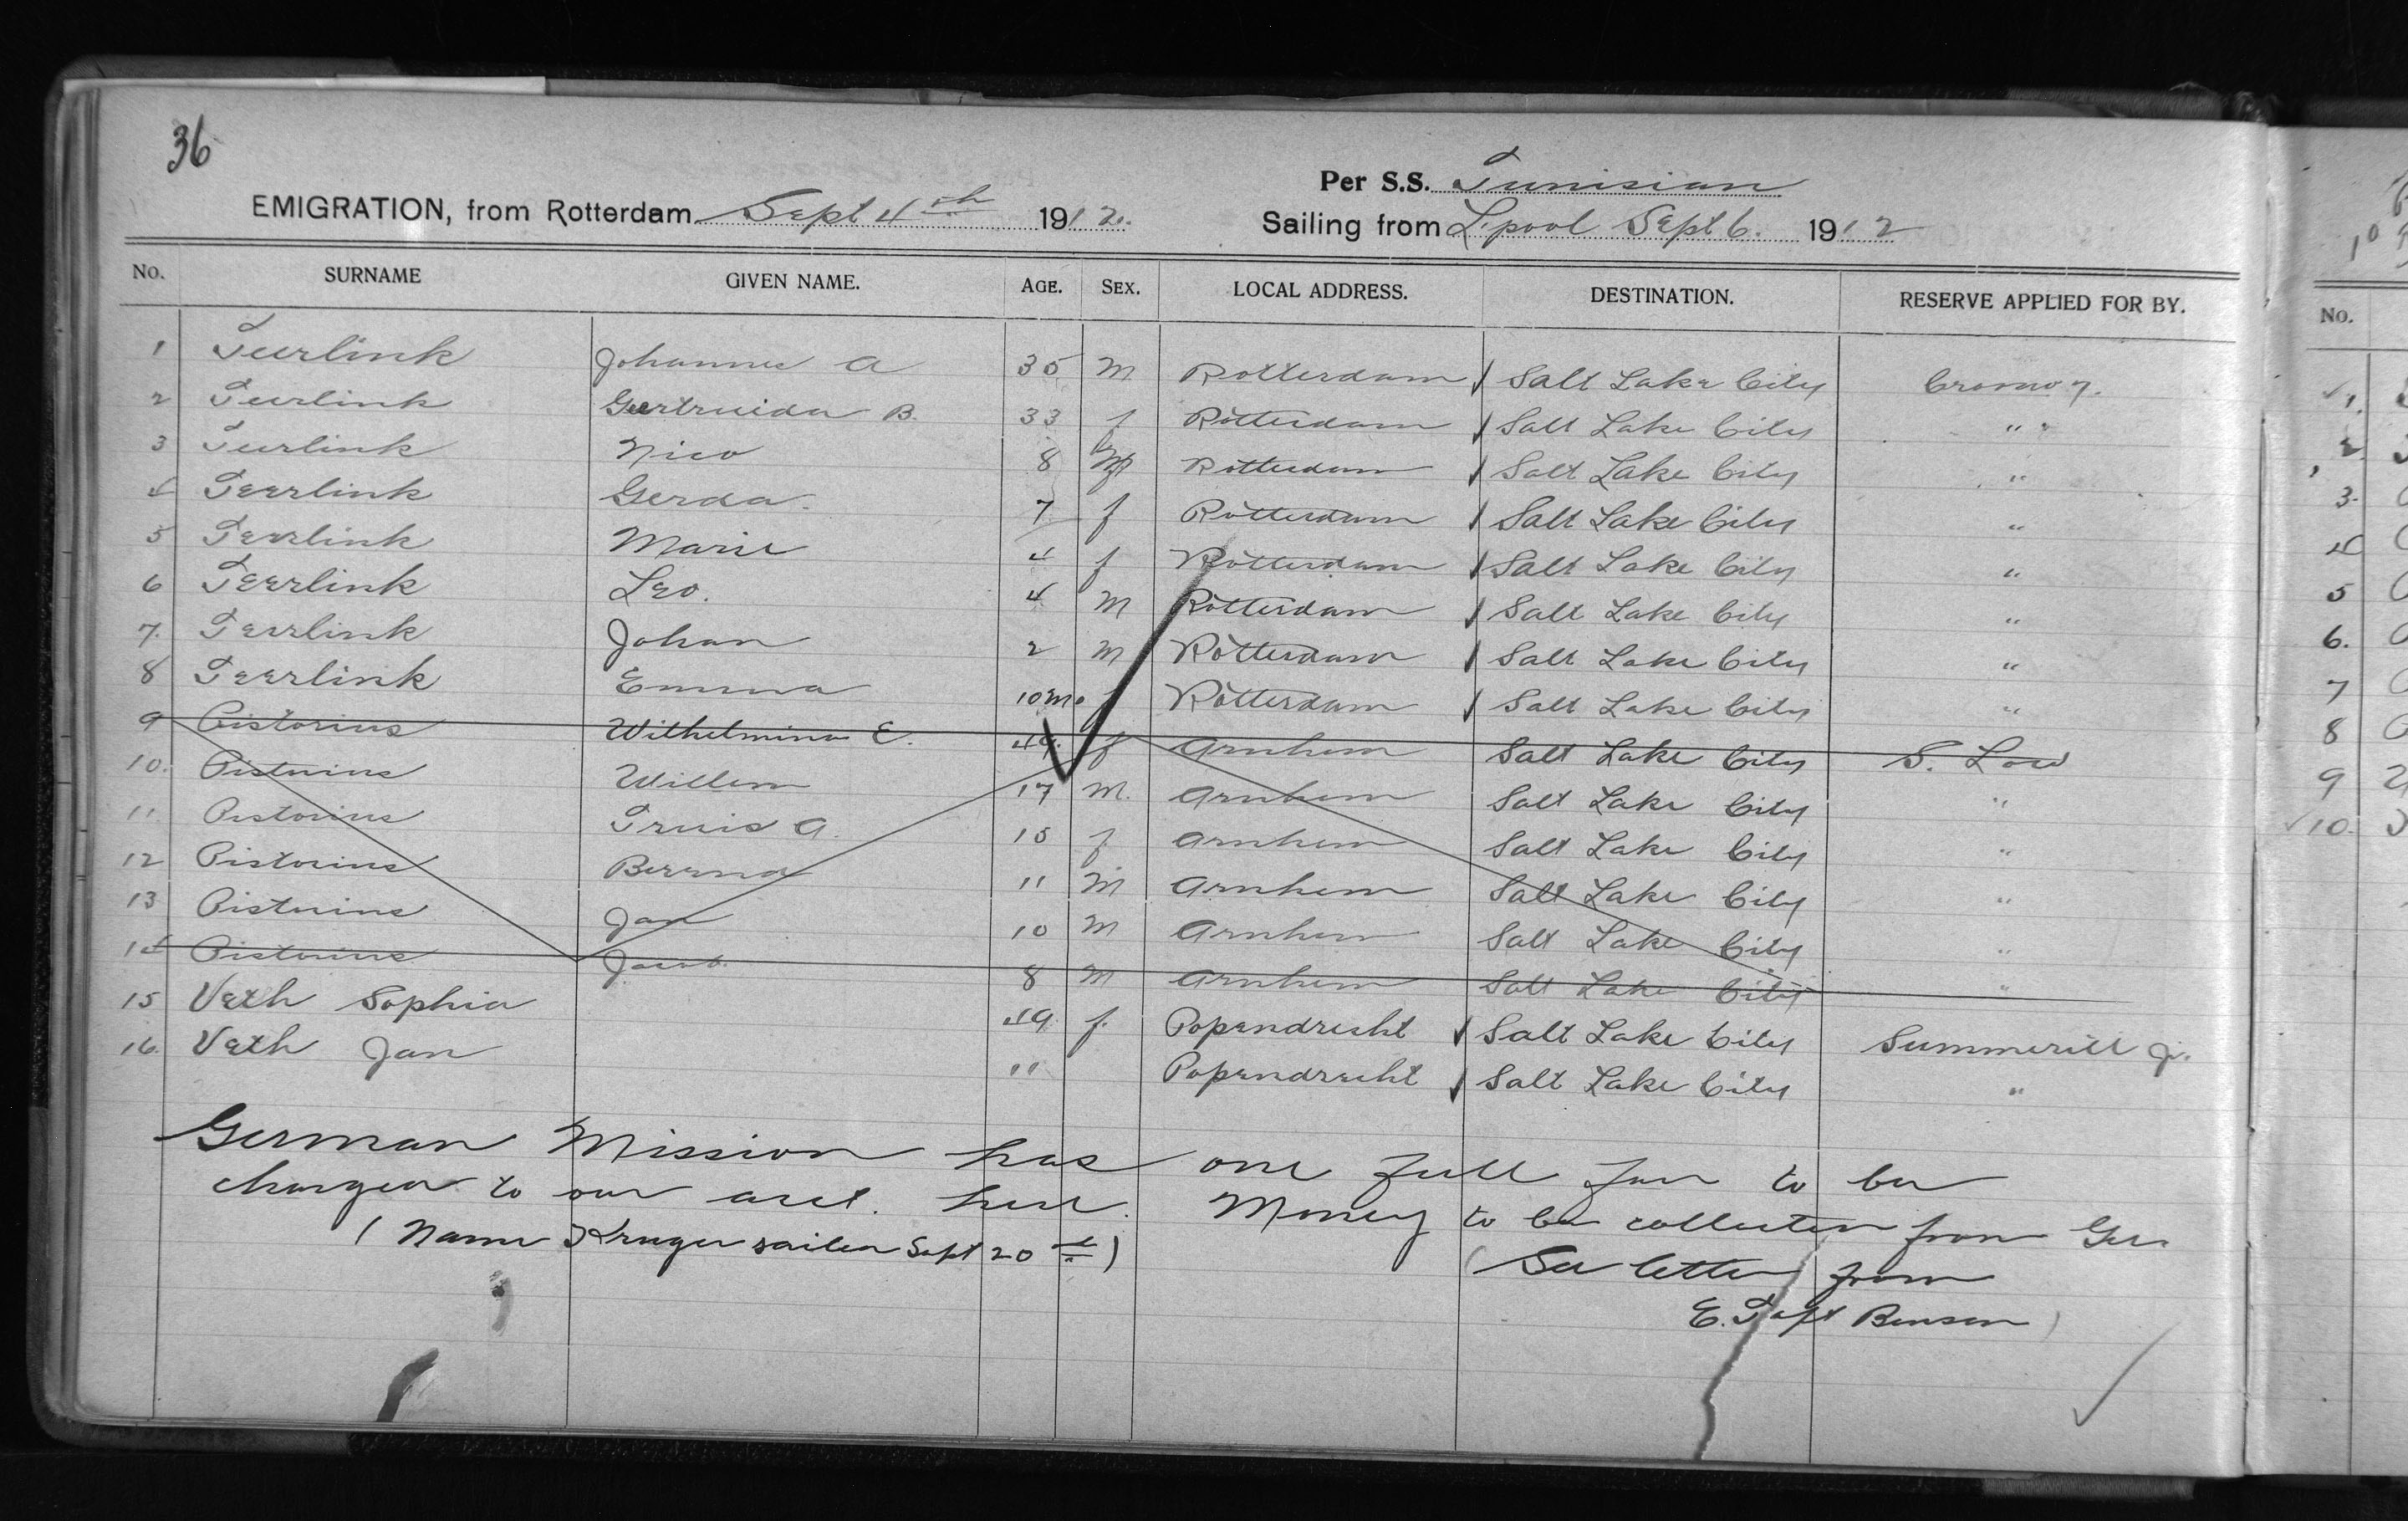 36
Per S.S. Tunisian
EMIGRATION, from Rotterdam Sept 4th 1912.
Sailing from L'pool Sept 6. 1912
No. SURNAME GIVEN NAME. AGE. SEX. LOCAL ADDRESS. DESTINATION. RESERVE APPLIED FOR BY.
1 Teerlink Johannes A 35 M Rotterdam Salt Lake City
2 Teerlink Geertruida B. 33 f Rotterdam Salt Lake City "
3 Teerlink Nico 8 M Rotterdam Salt Lake City "
4 Teerlink Gerda. 7 f Rotterdam Salt Lake City "
5 Teerlink Marie 4 f Rotterdam Salt Lake City "
6 Teerlink Leo. 4 M Rotterdam Salt Lake City "
7. Teerlink Johan 2 M Rotterdam Salt Lake City "
8 Teerlink Emma 10 mo f Rotterdam Salt Lake City "
9 Pistorius Wilhelmina E. 49. f Arnhem Salt Lake City S. Low
10. Pistorius Willem 17 M. Arnhem Salt Lake City "
11. Pistorius Truis A. 15 f Arnhem Salt Lake City "
12 Pistorius 11 M Arnhem Salt Lake City "
13 Pistorius Jan 10 M Arnhem Salt Lake City "
14 Pistorius Jacob. 8 M Arnhem Salt Lake City "
15 Veth Sophia 49. f. Papendrecht Salt Lake City
16. Veth Jan 11 Papendrecht Salt Lake City "
German Mission has one full fare to be
charged to our acct. here. Money to be collected from Ger.
(Name Kruger sailed Sept 20th) (See letter from
E. Taft Benson)
No.
1.
2
3.
4
5
6.
7
8
9
10.